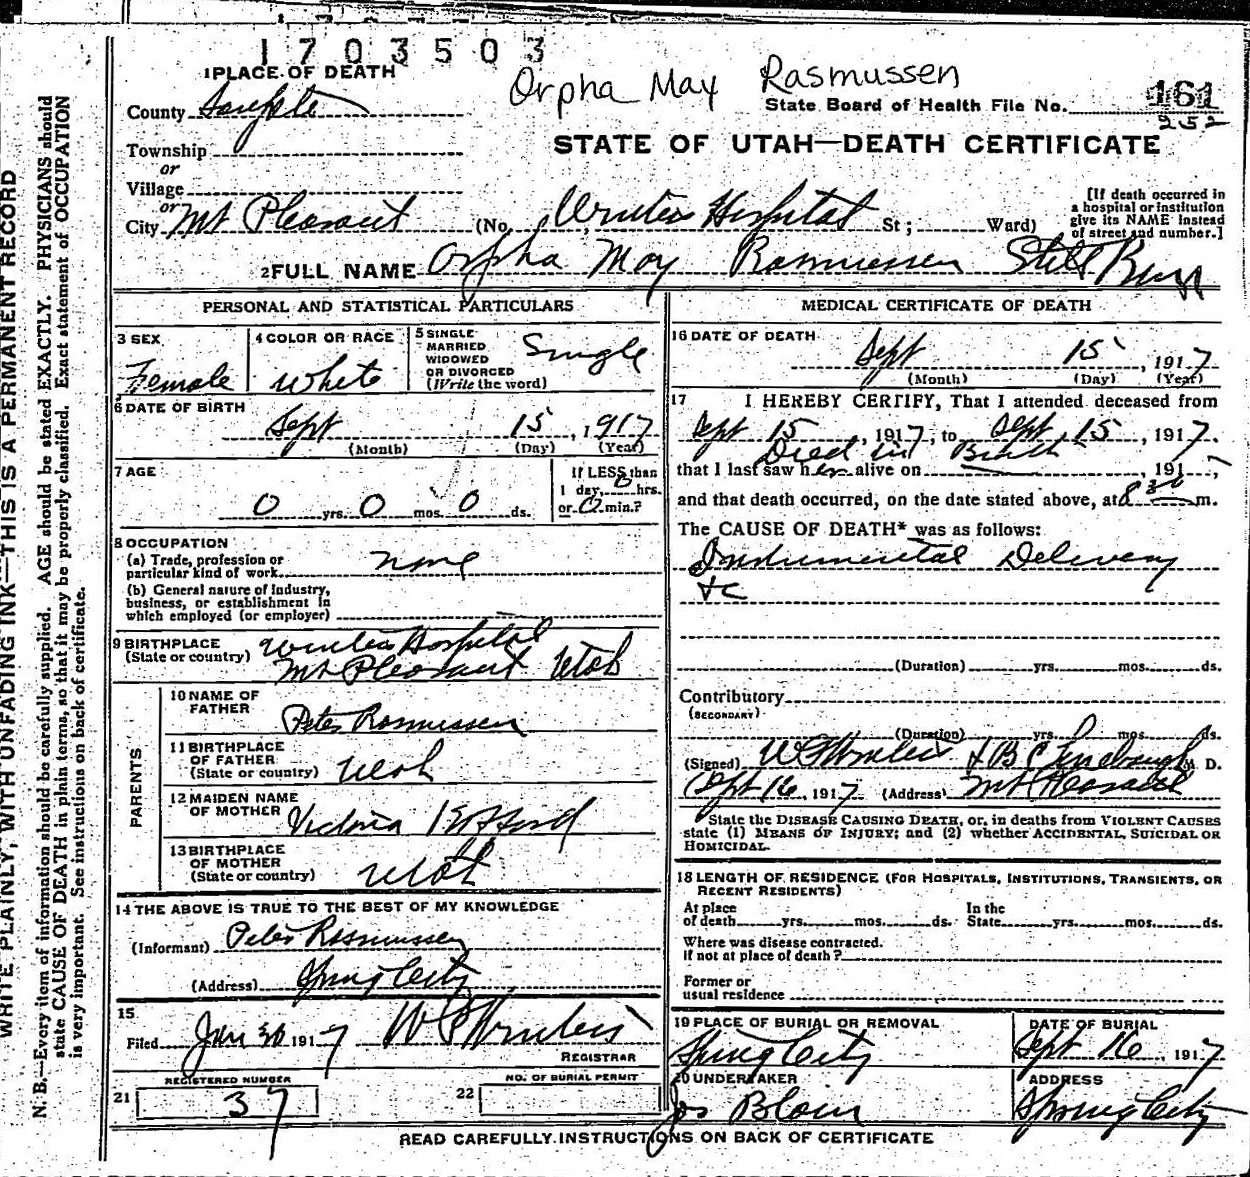 1703503
Orpha May Rasmussen
1 PLACE OF DEATH
State Board of Health File No. 161
252
County Sanpete
STATE OF UTAH—DEATH CERTIFICATE
Township
or
Village
or
City Mt Pleasant (No. Winters Hospital St; Ward)
[If death occurred in a hospital or institution give its NAME instead of street and number.]
2 FULL NAME Orpha May Rasmussen Still Born
PERSONAL AND STATISTICAL PARTICULARS
3 SEX Female
4 COLOR OR RACE White
5 SINGLE MARRIED WIDOWED OR DIVORCED (Write the word) Single
6 DATE OF BIRTH
Sept 15, 1917
(Month) (Day) (Year)
7 AGE
0 yrs. 0 mos. 0 ds.
If LESS than 1 day, 0 hrs. or 0 min.?
8 OCCUPATION
(a) Trade, profession or particular kind of work none
(b) General nature of industry, business, or establishment in which employed (or employer)
9 BIRTHPLACE (State or country) Winters Hospital
Mt Pleasant Utah
PARENTS
10 NAME OF FATHER Peter Rasmussen
11 BIRTHPLACE OF FATHER (State or country) Utah
12 MAIDEN NAME OF MOTHER Victoria
13 BIRTHPLACE OF MOTHER (State or country) Utah
14 THE ABOVE IS TRUE TO THE BEST OF MY KNOWLEDGE
(Informant) Peter Rasmussen
(Address) Spring City
15
Filed Jan 30 1917 W P Winters
REGISTRAR
REGISTERED NUMBER
21 37
NO. OF BURIAL PERMIT
22
MEDICAL CERTIFICATE OF DEATH
16 DATE OF DEATH
Sept 15, 1917
(Month) (Day) (Year)
17 I HEREBY CERTIFY, That I attended deceased from
Sept 15, 1917, to Sept 15, 1917.
Died in Birth
that I last saw her alive on , 191 ,
and that death occurred, on the date stated above, at 8 30 m.
The CAUSE OF DEATH* was as follows:
Instrumental Delivery
&c
(Duration) yrs. mos. ds.
Contributory
(SECONDARY)
(Duration) yrs. mos. ds.
(Signed) W P Winters & B C Linebaugh M. D.
Sept 16, 1917 (Address) Mt Pleasant
State the DISEASE CAUSING DEATH, or, in deaths from VIOLENT CAUSES state (1) MEANS OF INJURY; and (2) whether ACCIDENTAL, SUICIDAL OR HOMICIDAL.
18 LENGTH OF RESIDENCE (FOR HOSPITALS, INSTITUTIONS, TRANSIENTS, OR RECENT RESIDENTS)
At place of death yrs. mos. ds. In the State yrs. mos. ds.
Where was disease contracted. if not at place of death?
Former or usual residence
19 PLACE OF BURIAL OR REMOVAL
Spring City
DATE OF BURIAL
Sept 16, 1917
20 UNDERTAKER
Jos Blain
ADDRESS
Spring City
READ CAREFULLY INSTRUCTIONS ON BACK OF CERTIFICATE
WRITE PLAINLY, WITH UNFADING INK—THIS IS A PERMANENT RECORD
N. B.—Every item of information should be carefully supplied. AGE should be stated EXACTLY. PHYSICIANS should
state CAUSE OF DEATH in plain terms, so that it may be properly classified. Exact statement of OCCUPATION
is very important. See instructions on back of certificate.